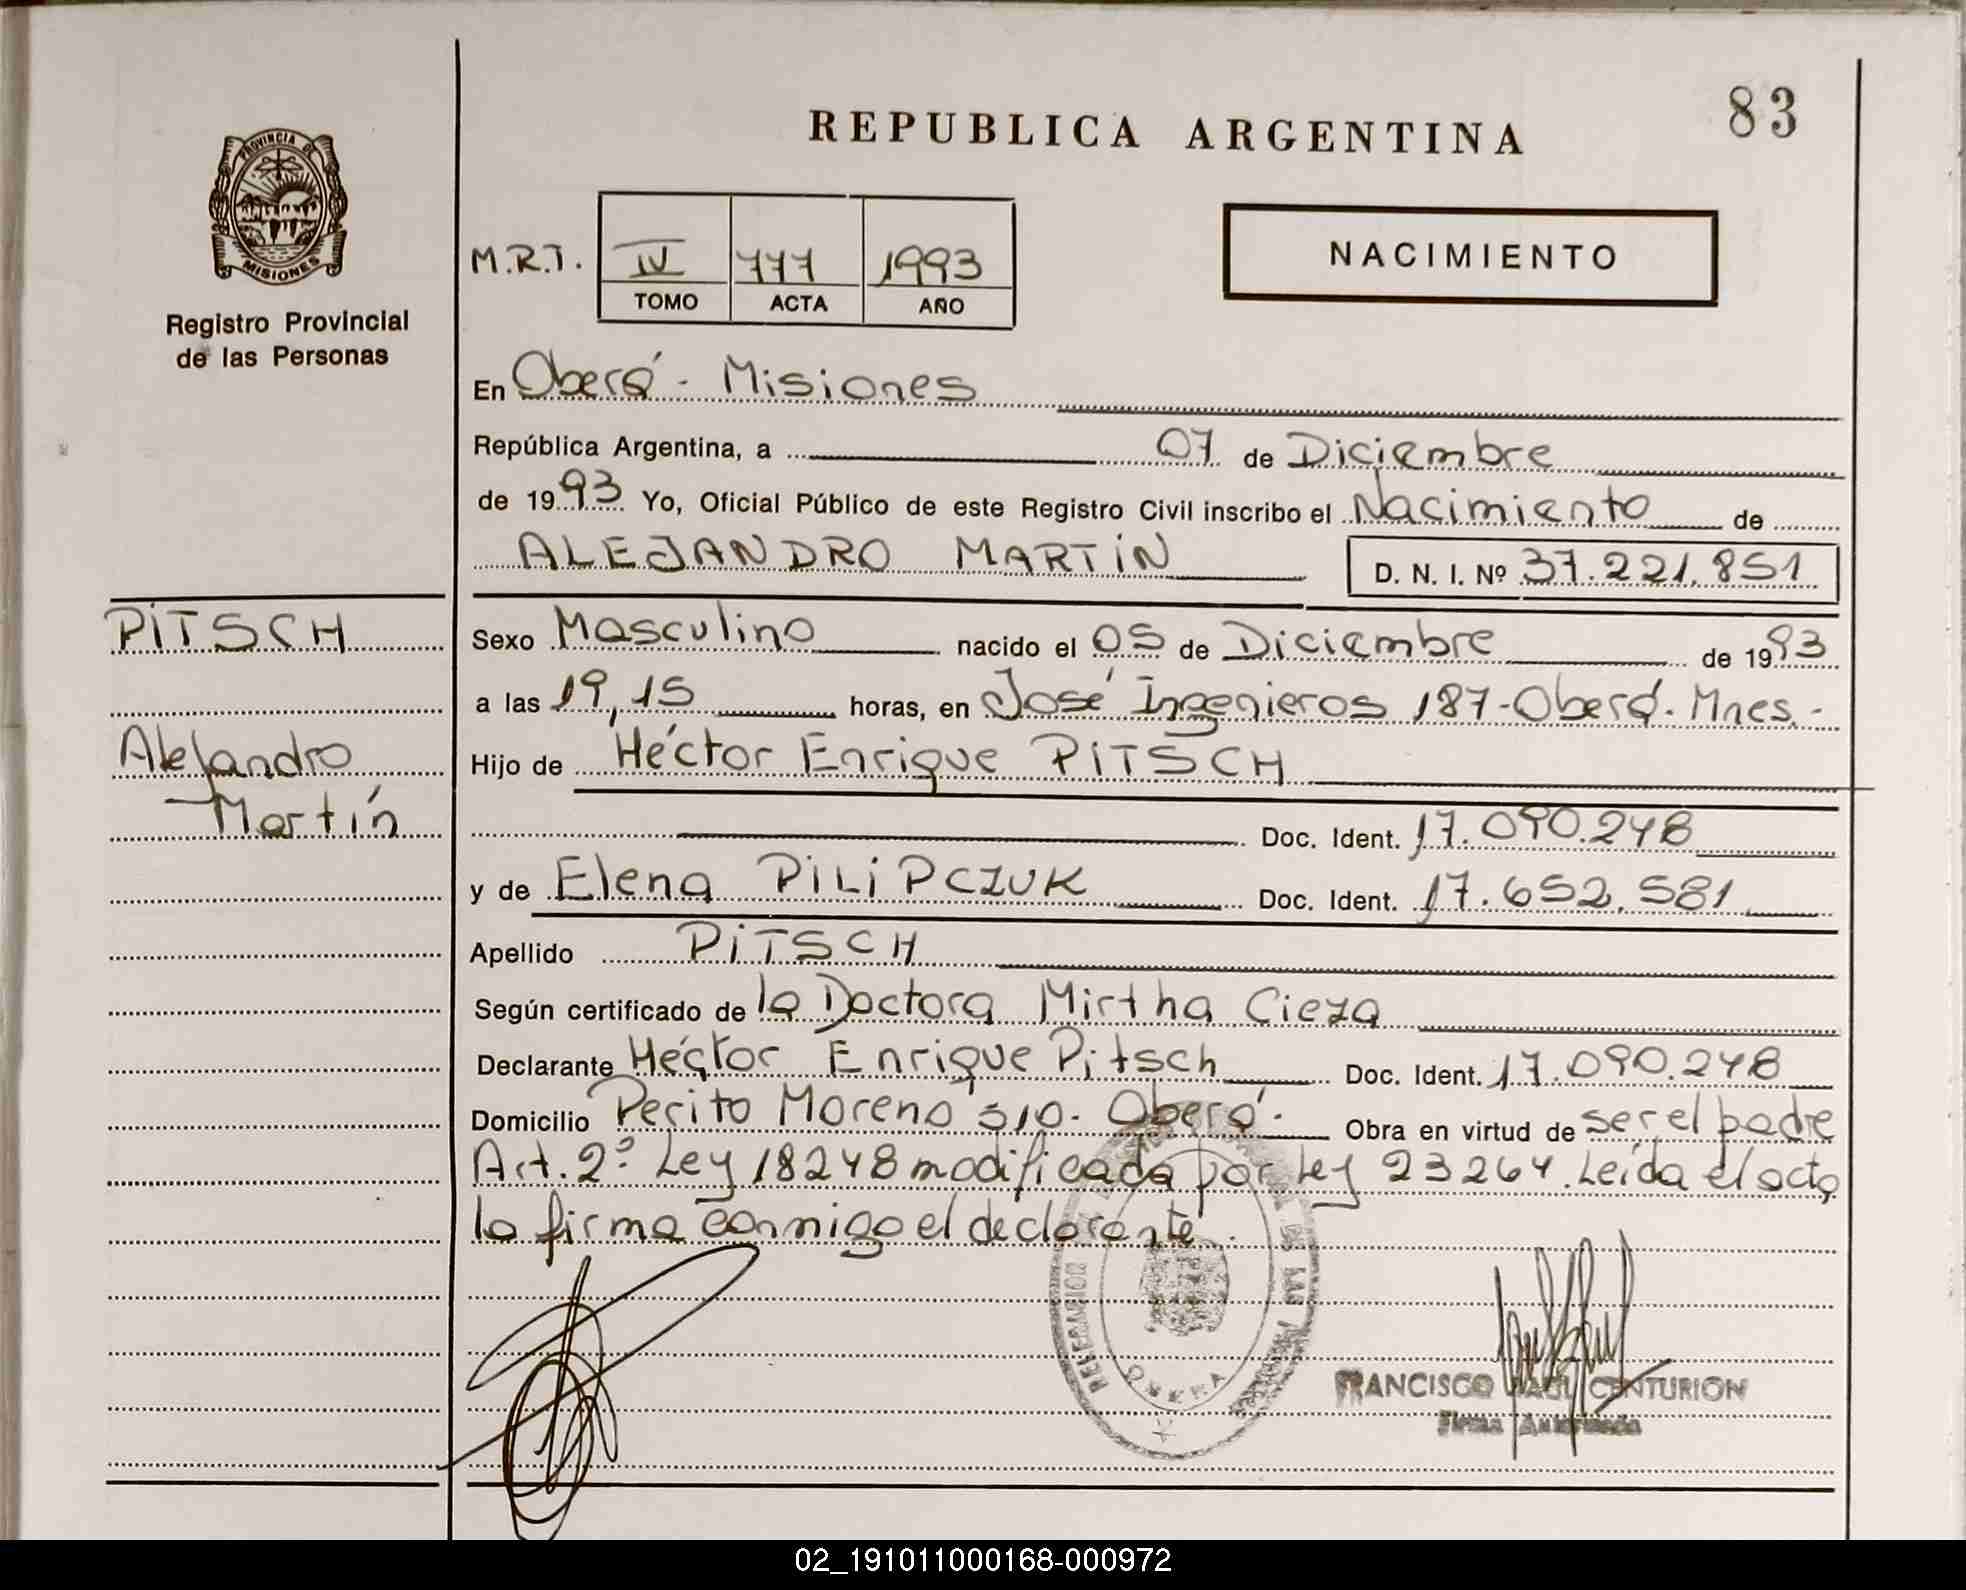 83
REPUBLICA ARGENTINA
PROVINCIA DE
MISIONES
Registro Provincial
de las Personas
M.R.T. IV 777 1993
TOMO ACTA AÑO
NACIMIENTO
En Oberá - Misiones
República Argentina, a 07 de Diciembre
de 1993 Yo, Oficial Público de este Registro Civil inscribo el Nacimiento de
ALEJANDRO MARTÍN D. N. I. Nº 37.221.851
PITSCH
Alejandro
Martín
Sexo Masculino nacido el 05 de Diciembre de 1993
a las 19,15 horas, en José Ingenieros 187-Oberá. Mnes.-
Hijo de Héctor Enrique PITSCH
Doc. Ident. 17.090.248
y de Elena PILIPCZUK Doc. Ident. 17.652.581
Apellido PITSCH
Según certificado de la Doctora Mirtha Cieza
Declarante Héctor Enrique Pitsch Doc. Ident. 17.090.248
Domicilio Perito Moreno 510- Oberá.- Obra en virtud de ser el padre
Art. 2º Ley 18248 modificada por Ley 23264. Leída el acta
la firma conmigo el declarante.
DE LAS
OBERA
FRANCISCO RAUL CENTURION
Firma Autorizada
02_191011000168-000972